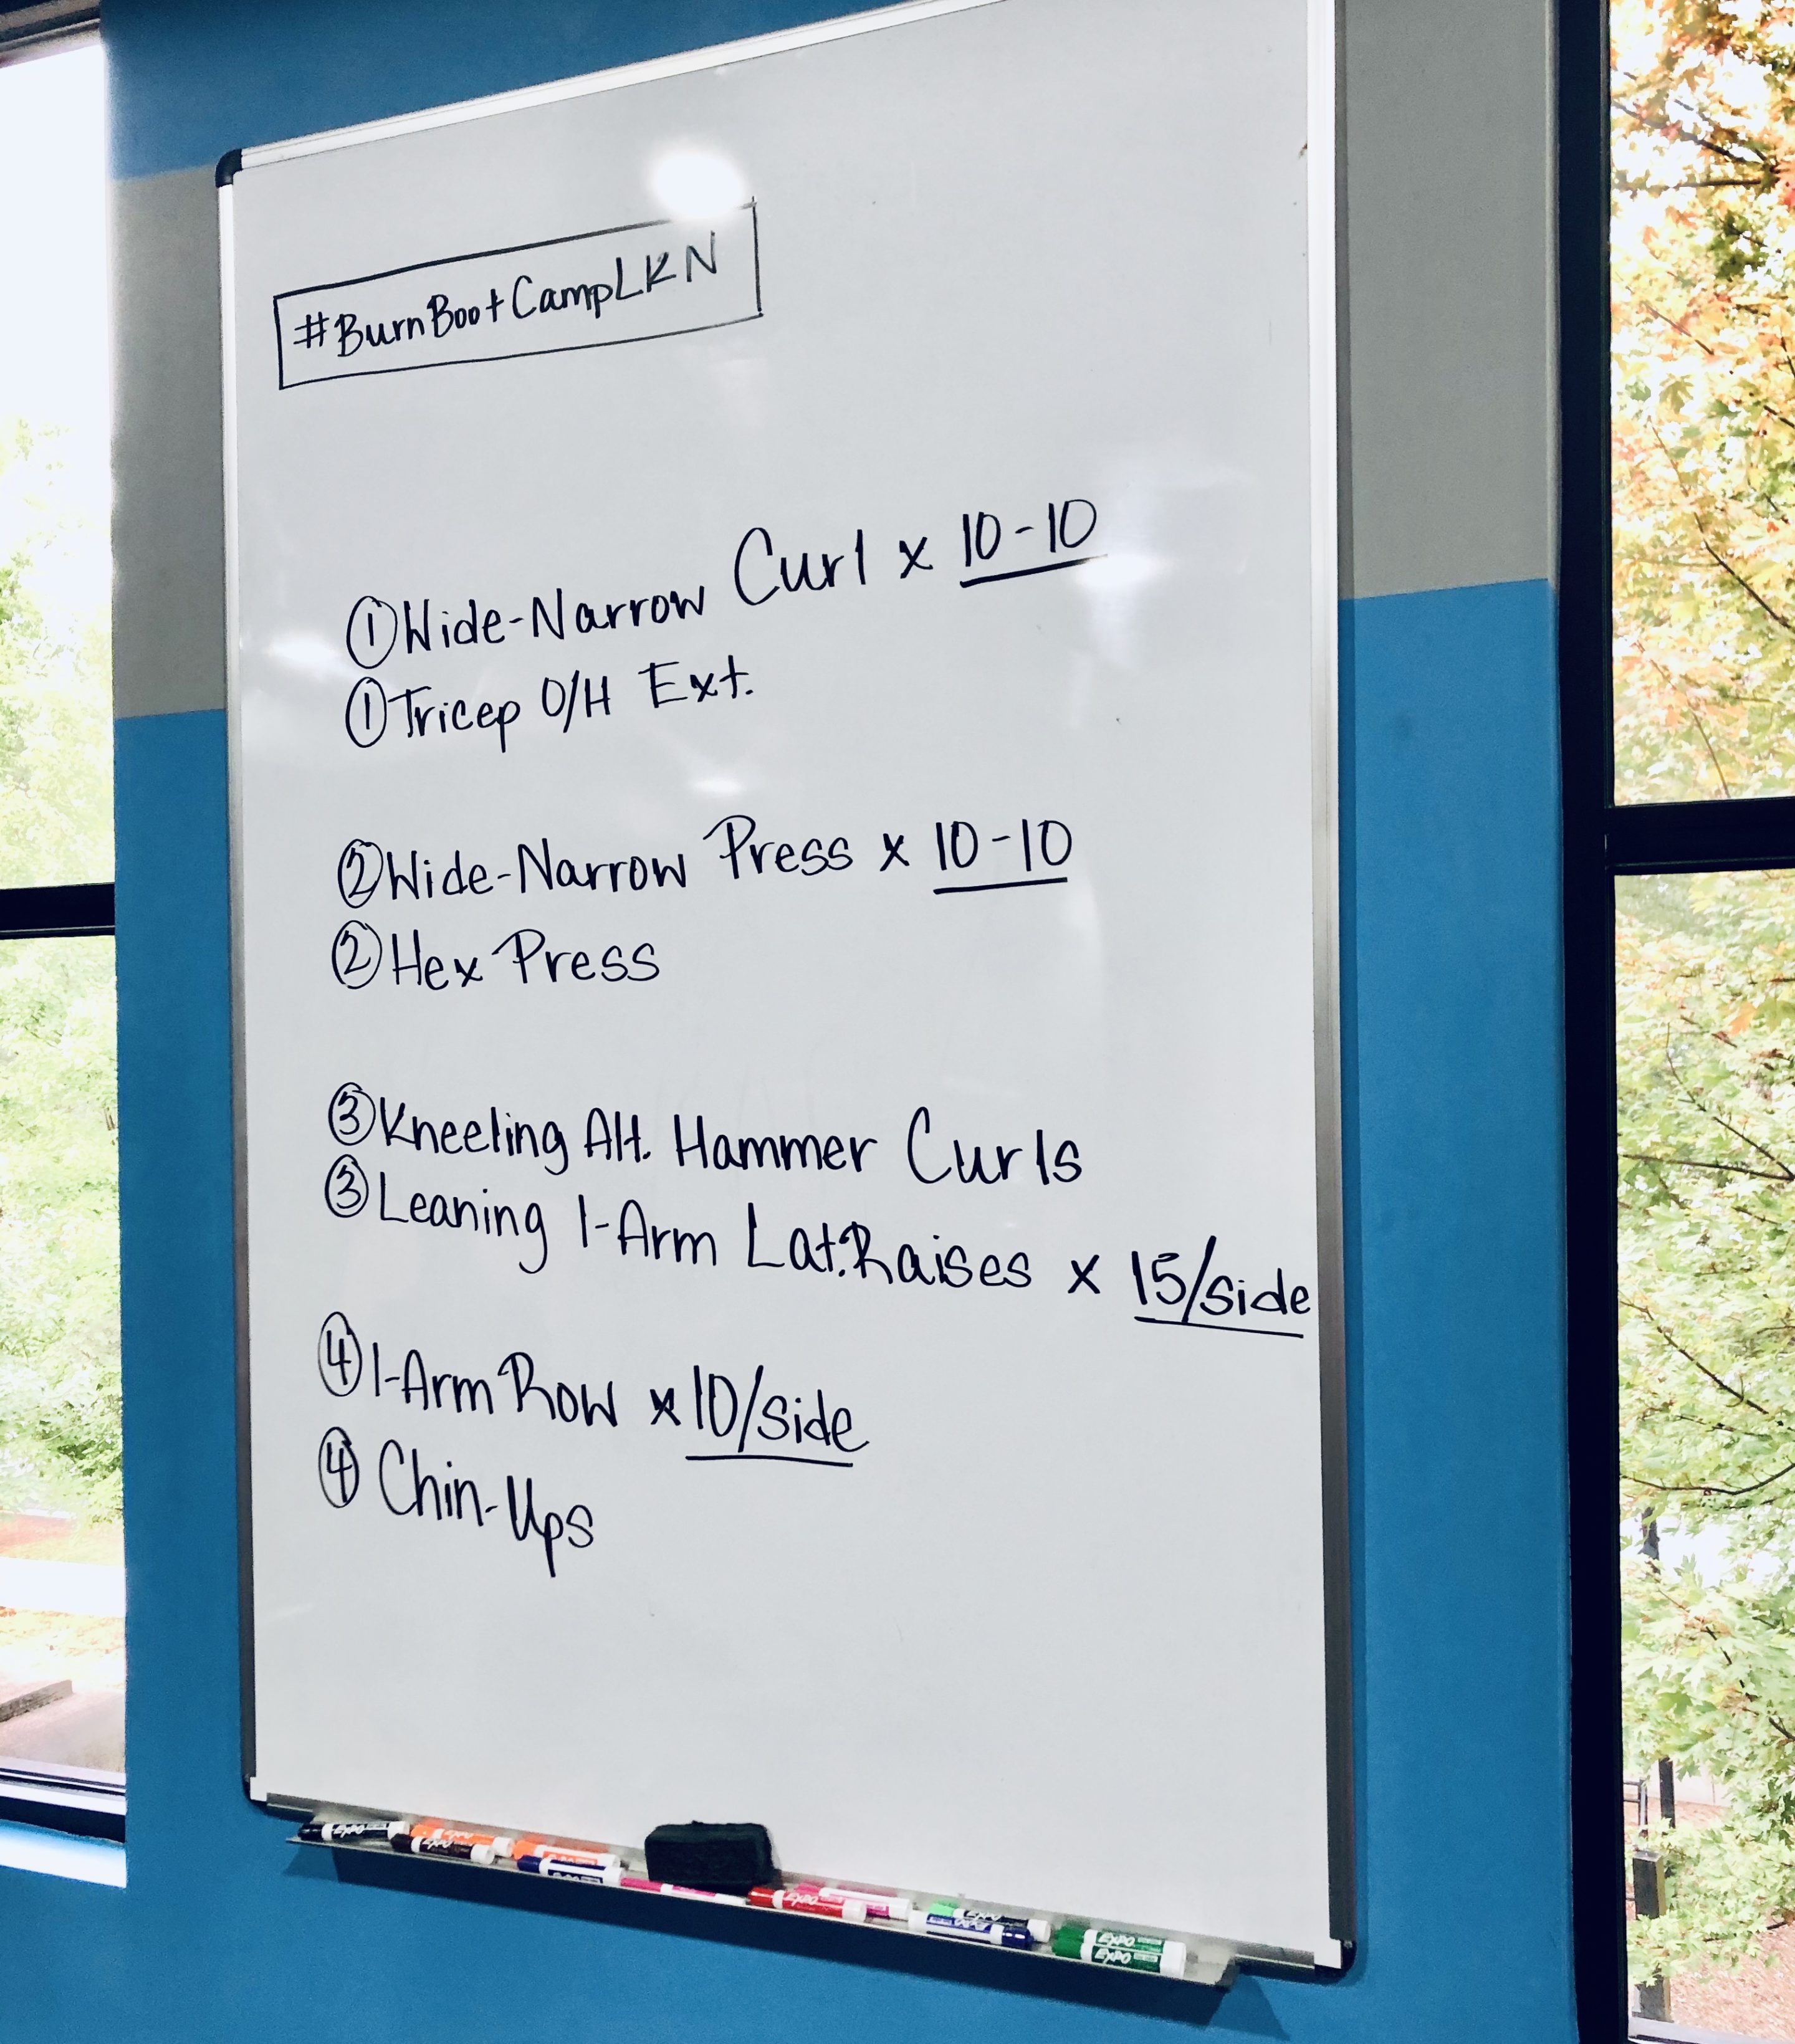 #BurnBootCampLKN
①Wide-Narrow Curl x 10-10
①Tricep O/H Ext.
②Wide-Narrow Press x 10-10
②Hex Press
③Kneeling Alt. Hammer Curls
③Leaning 1-Arm Lat.Raises x 15/side
④1-Arm Row x 10/side
④Chin-Ups
EXPO
EXPO
EXPO
EXPO
EXPO
EXPO
EXPO